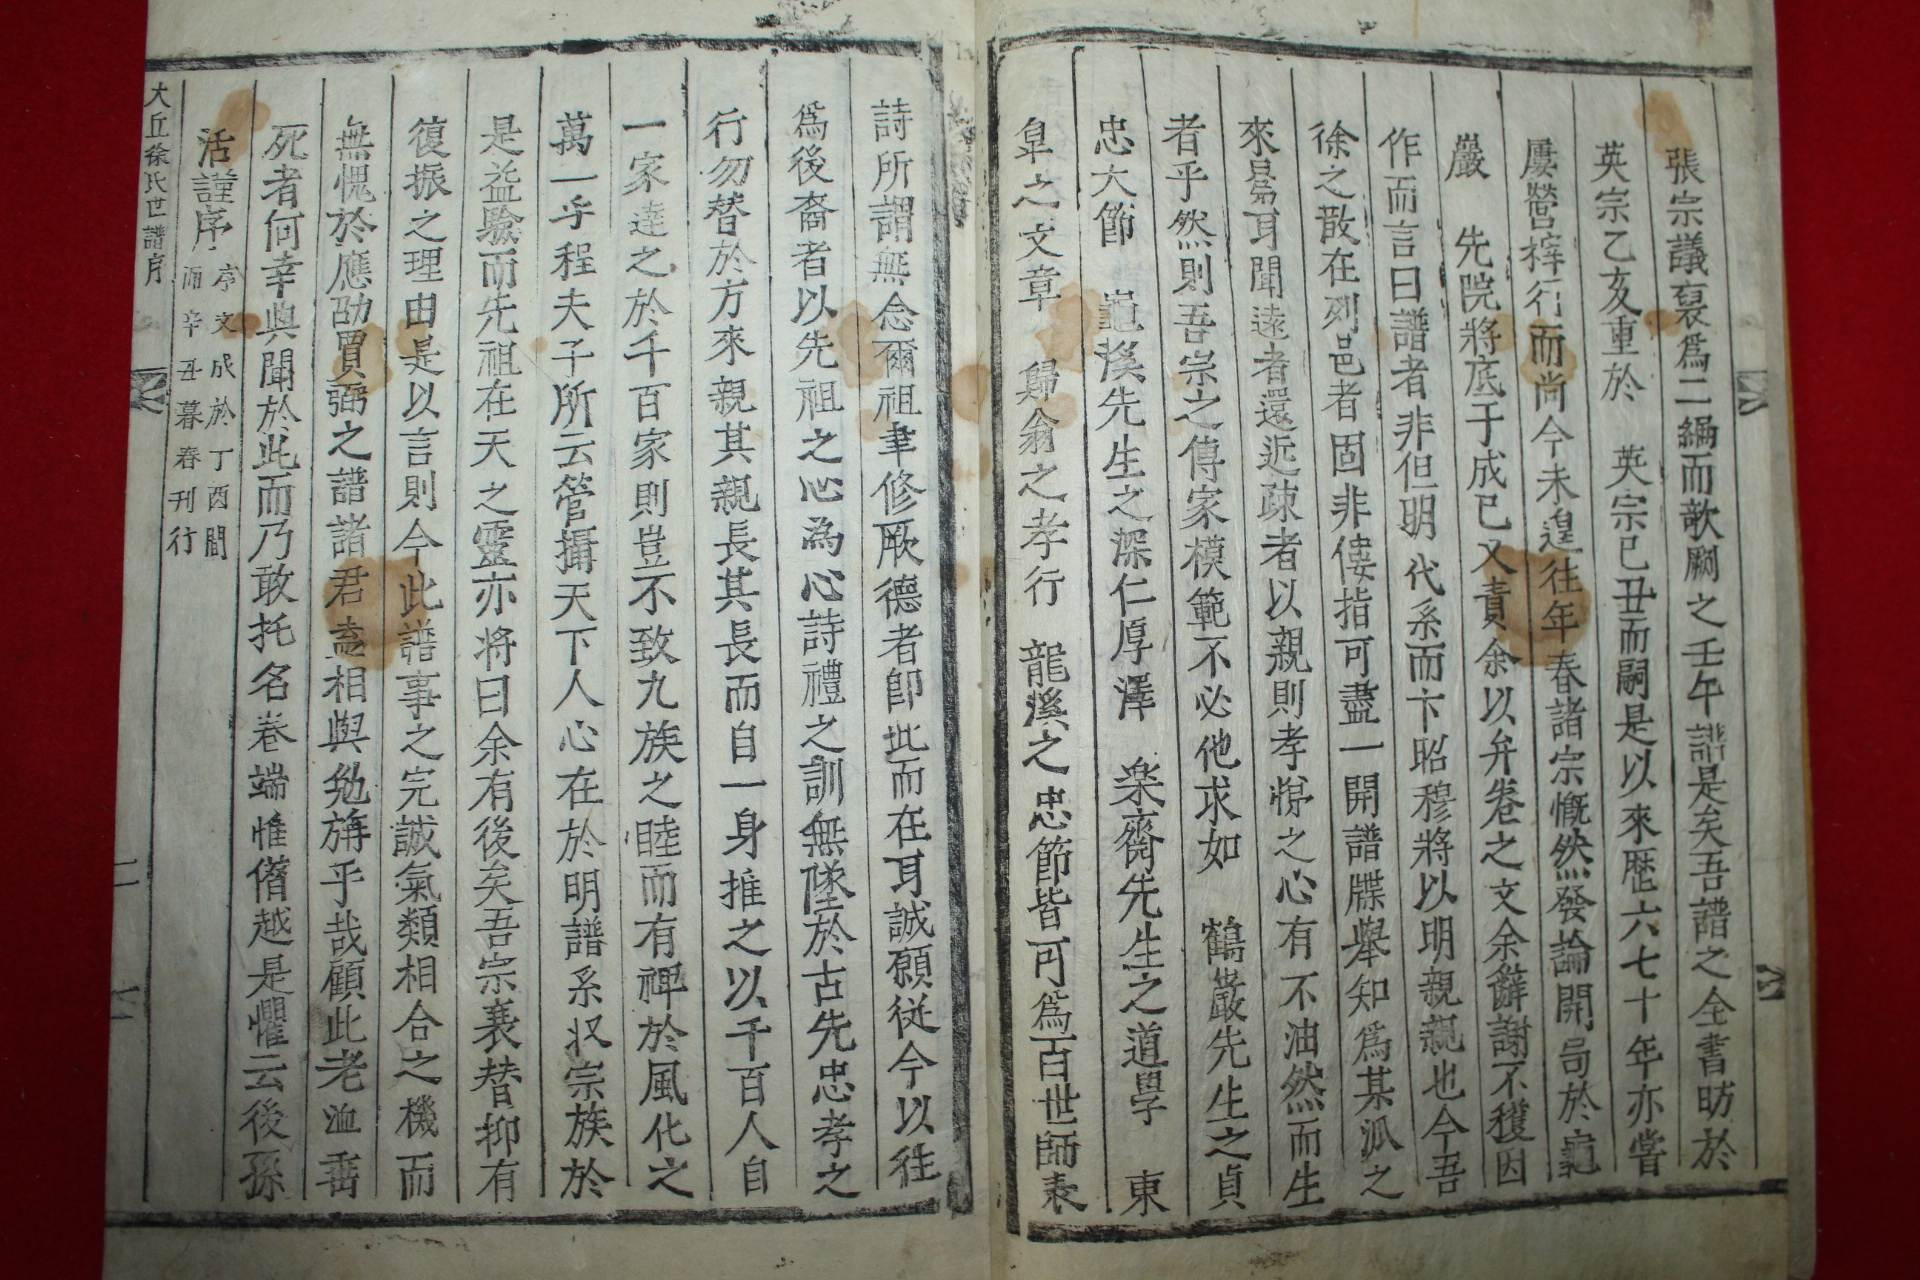 張宗議裒爲二編而歌劂之壬午譜是矣吾譜之全書昉於
英宗乙亥重於 英宗己丑而嗣是以來歷六七十年亦嘗
屢營榟行而尚今未遑往年春諸宗慨然發論開局於龜
嚴 先院將底于成已又責余以弁卷之文余辭謝不穫因
作而言曰譜者非但明代系而卞昭穆將以明親親也今吾
徐之散在列邑者固非僂指可盡一開譜牒舉知爲某派之
來曷耳聞遠者還近疎者以親則孝悌之心有不油然而生
者乎然則吾宗之傳家模範不必他求如 鶴巖先生之貞
忠大節 龜溪先生之深仁厚澤 樂齋先生之道學 東
皐之文章 歸翁之孝行 龍溪之忠節皆可爲百世師表
詩所謂無念爾祖聿修厥德者卽此而在耳誠願從今以往
爲後裔者以先祖之心為心詩禮之訓無墜於古先忠孝之
行勿替於方來親其親長其長而自一身推之以千百人自
一家達之於千百家則豈不致九族之睦而有裨於風化之
萬一乎程夫子所云管攝天下人心在於明譜系収宗族於
是益驗而先祖在天之靈亦將曰余有後矣吾宗衰替抑有
復振之理由是以言則今此譜事之完誠氣類相合之機而
無愧於應劭賈弼之譜諸君盍相與勉旃乎哉顧此老洫垂
死者何幸與聞於此而乃敢托名卷端惟僭越是懼云後孫
活謹序 序文成於丁酉間
而辛丑暮春刊行
大丘徐氏世譜序
二